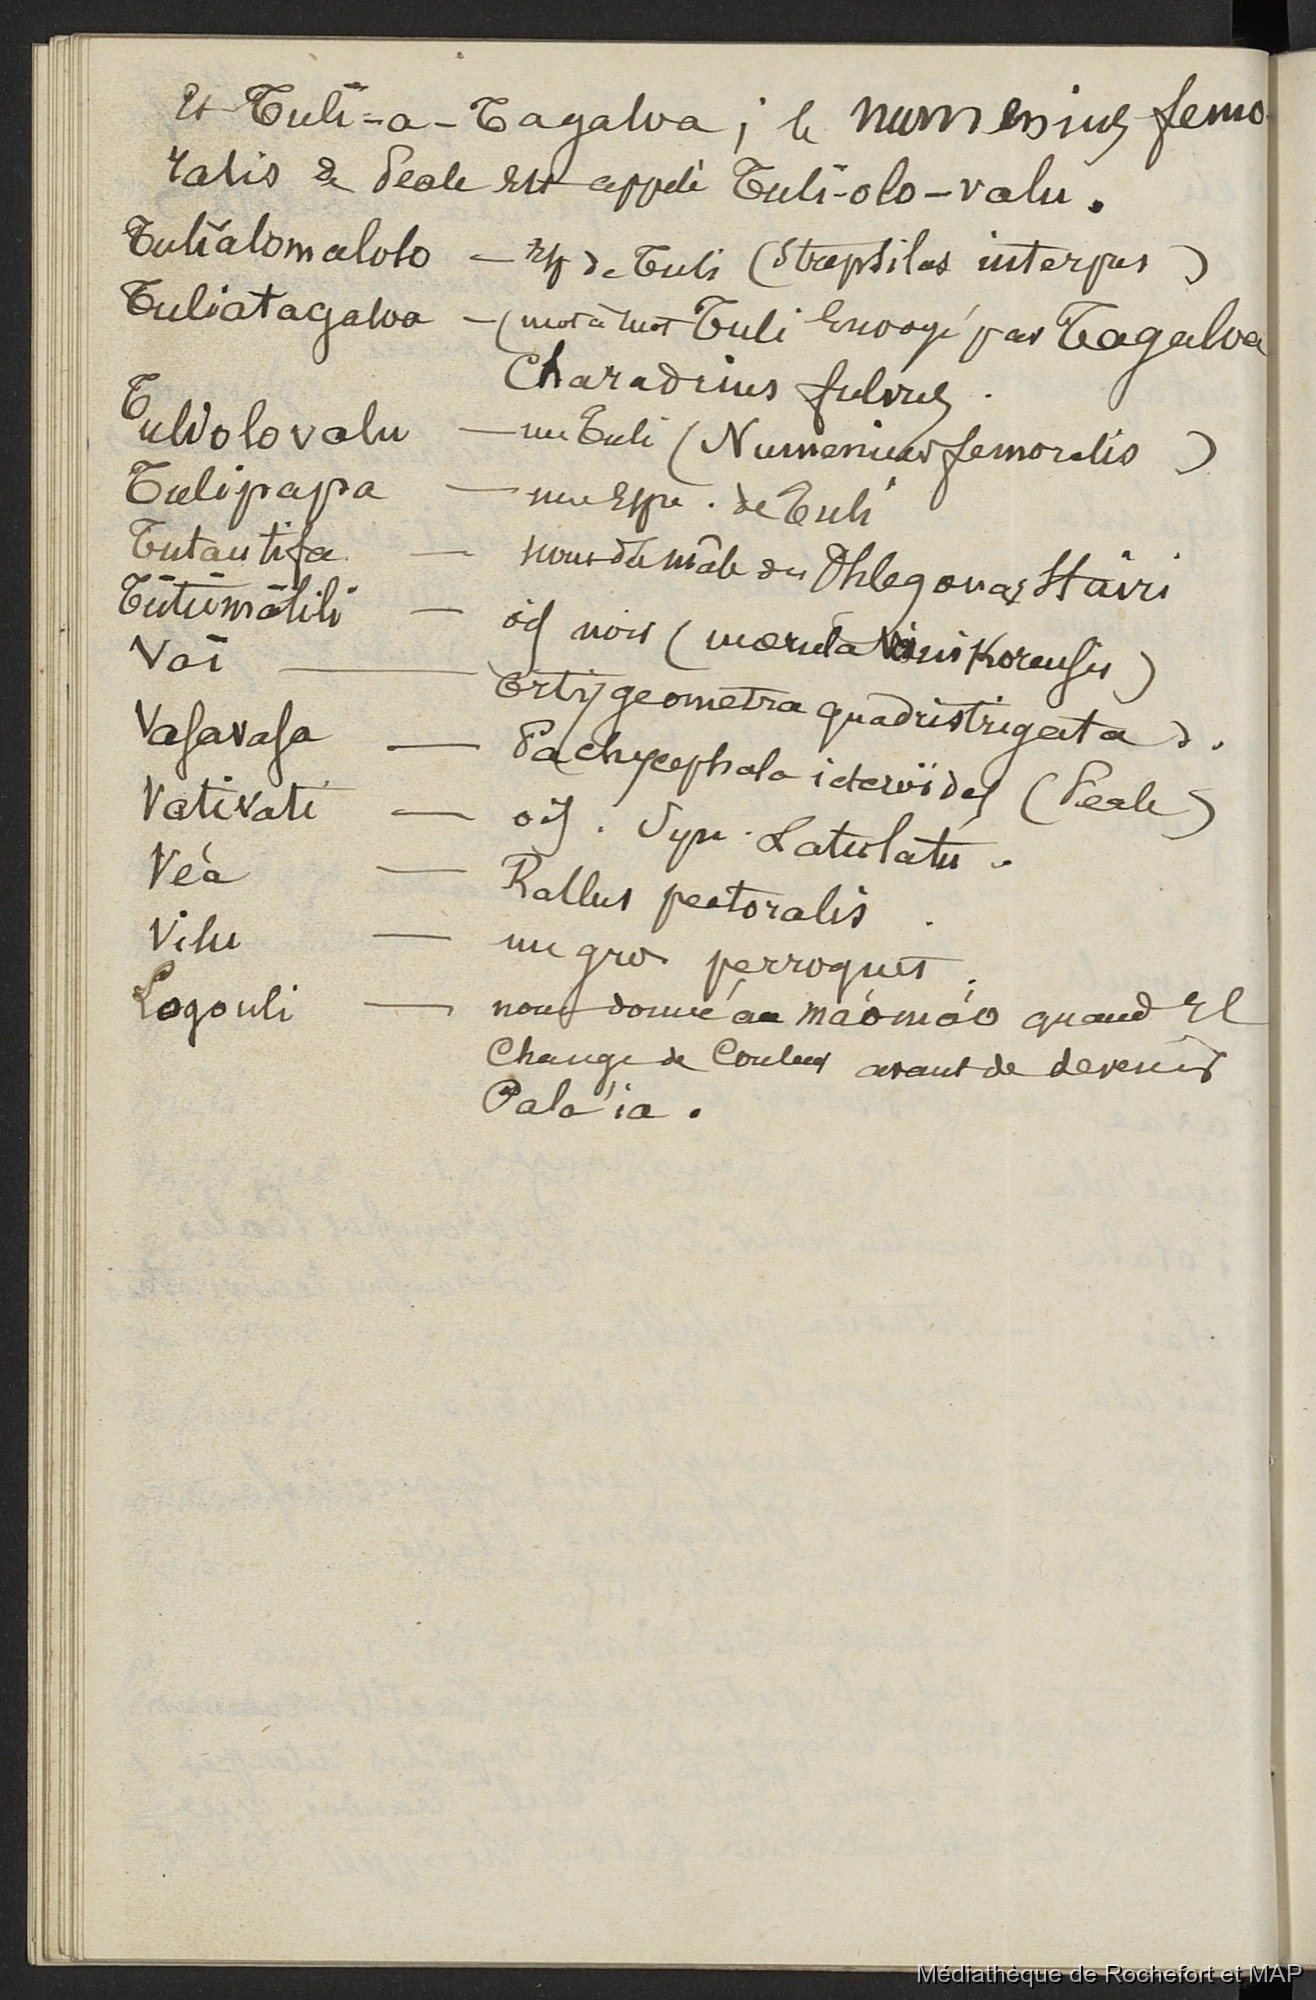 Et Tuli-a-Tagaloa ; le numenius femo-
ralis de Peale est appelé Tuli-olo-valu.
Tulialomalolo — esp de Tuli (Strepsilas interpres)
Tuliatagaloa — (mot à mot Tuli envoyé par Tagaloa
Charadrius fulvus.
Tuliolovalu — un Tuli (Numenius femoralis)
Tulipapa — une espe. de Tuli
Tutautifa — nom du mâle du Phlegonas Stairi
Tūtūmālili — ois noir (merula Vanikorensis)
Vai — Ortygeometra quadristrigata
Vasavasa — Pachycephala icteroïdes (Peale)
Vativati — ois. Syn. Latulatu.
Veá — Rallus pectoralis.
Vilu — un gros perroquet.
Logouli — nom donné au maómáo quand il
Change de Couleur avant de devenir
Pala'ia.
Médiathèque de Rochefort et MAP